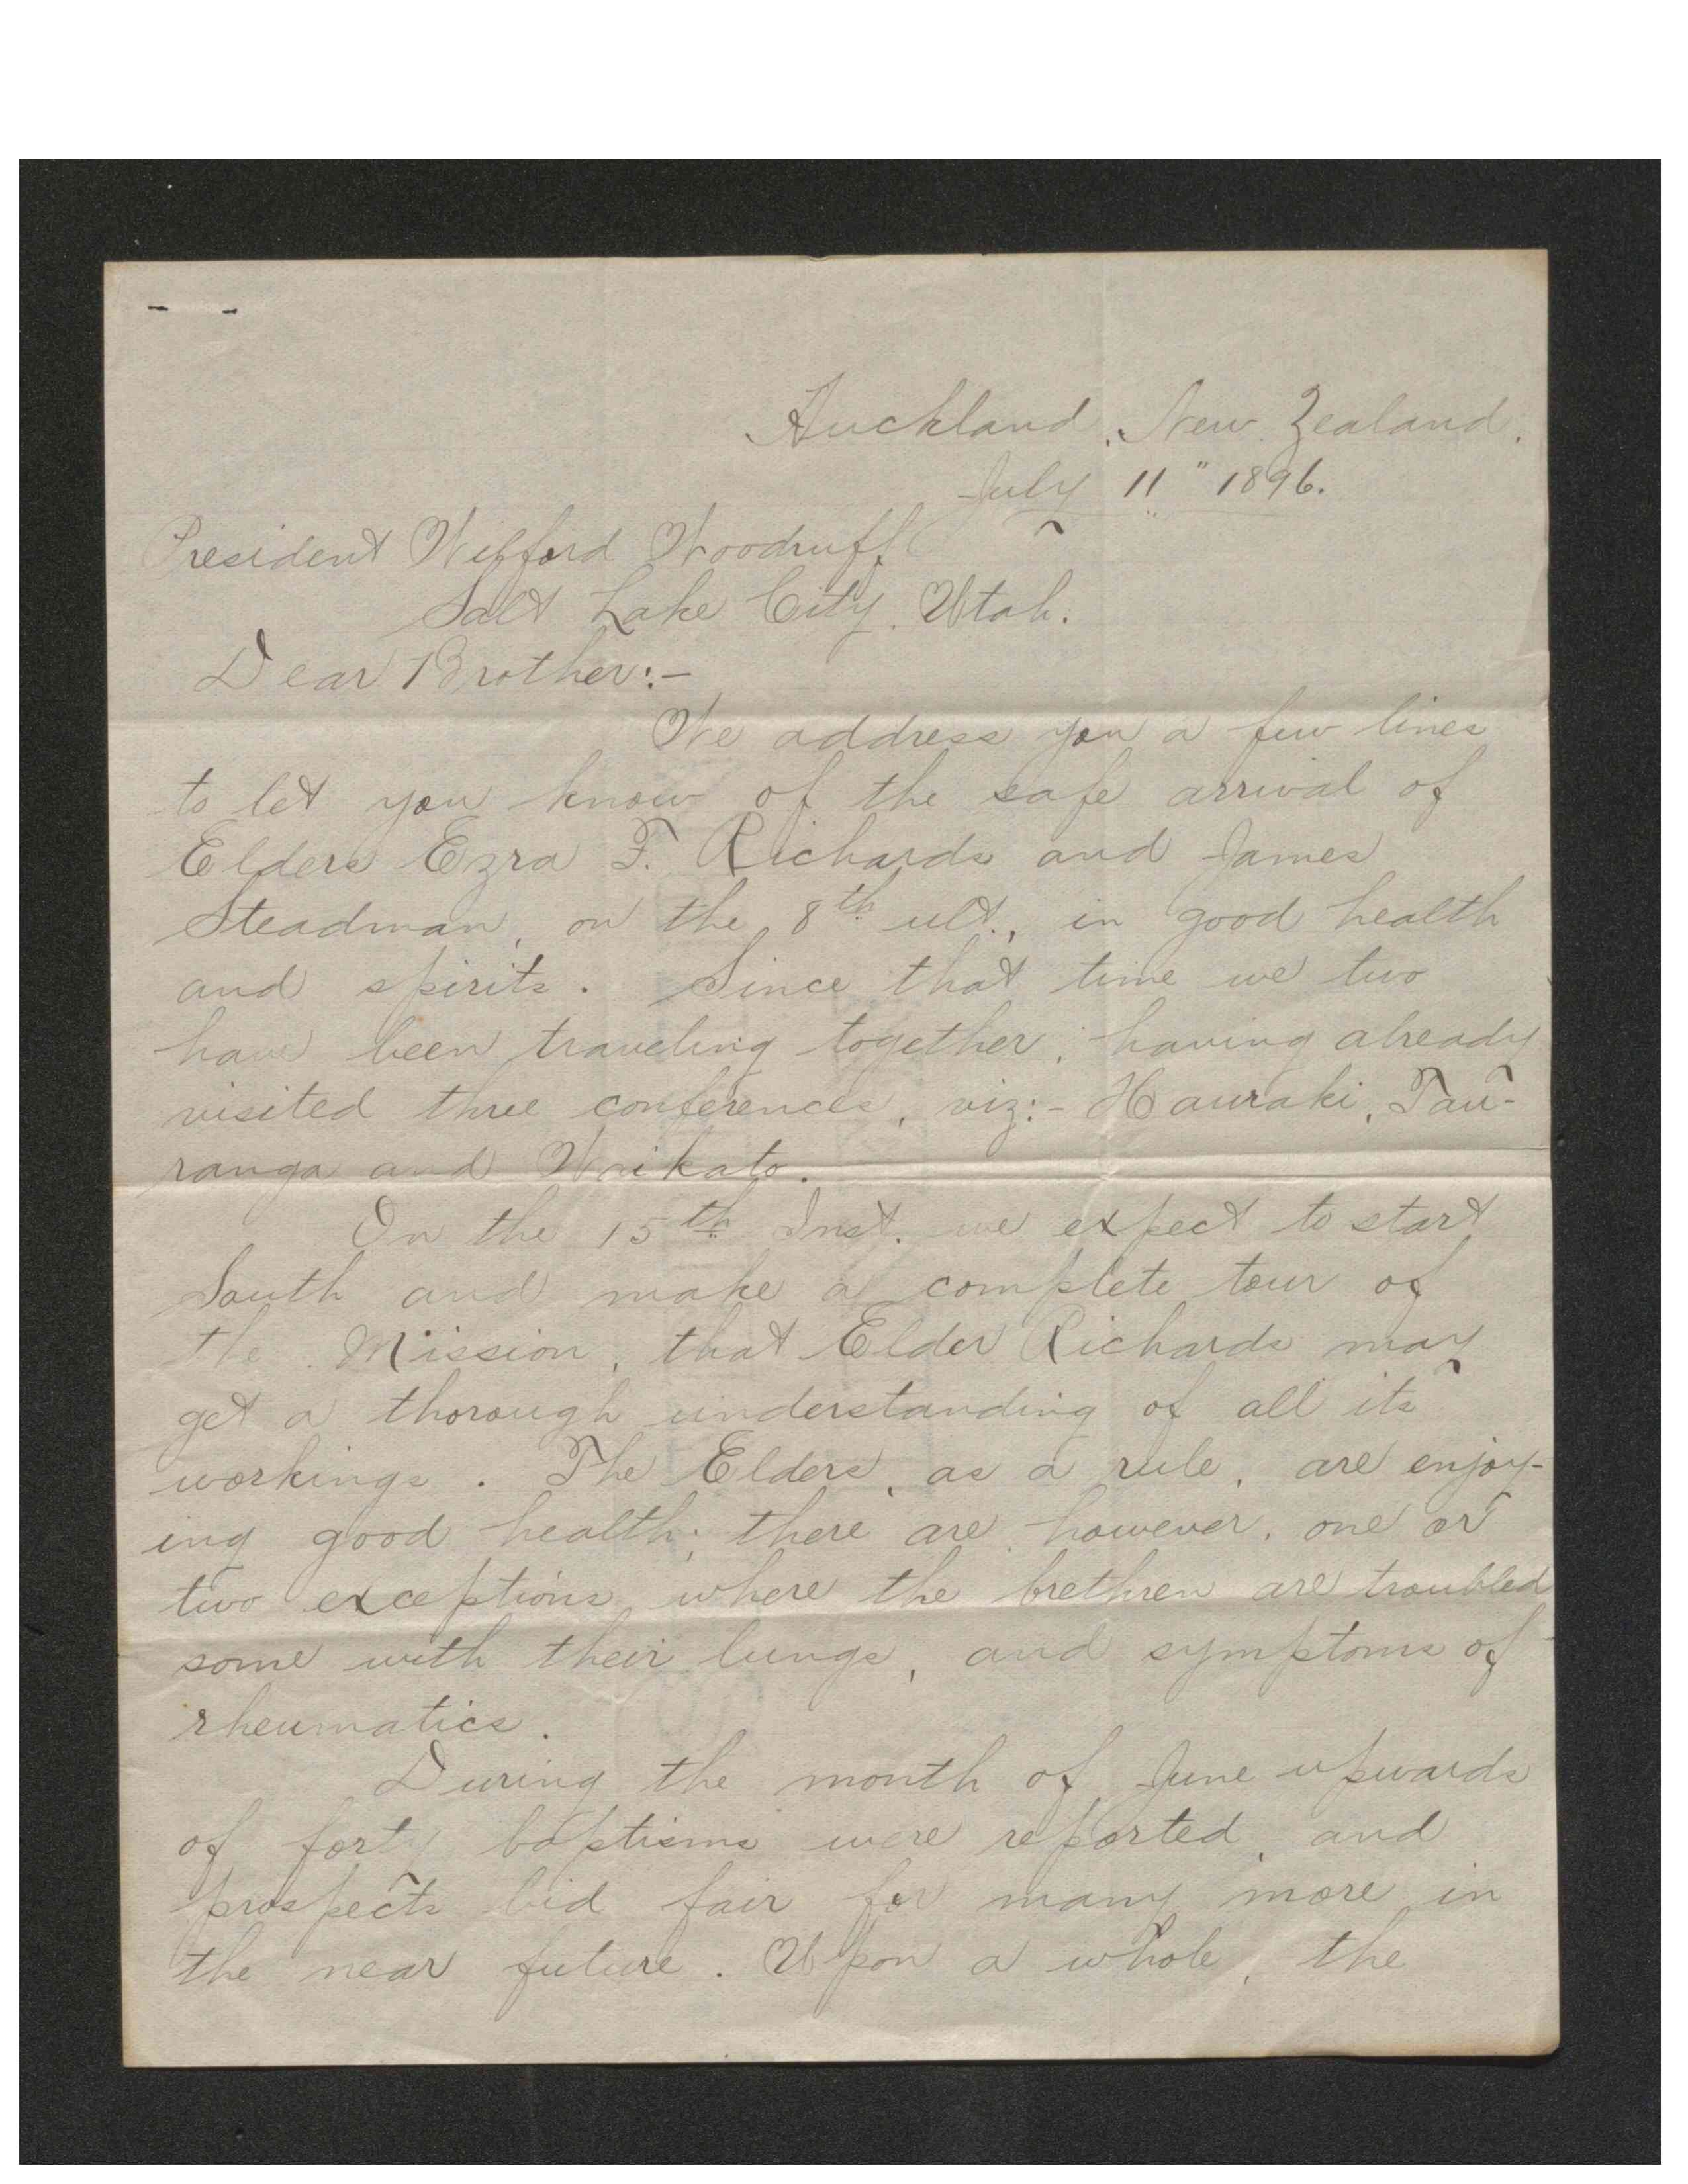 Auckland, New Zealand.
July 11" 1896.
President Wilford Woodruff
Salt Lake City, Utah.
Dear Brother:-
We address you a few lines
to let you know of the safe arrival of
Elders Ezra T. Richards and James
Steadman, on the 8th ult., in good health
and spirits. Since that time we two
have been traveling together, having already
visited three conferences, viz:- Hauraki, Tau-
ranga and Waikato.
On the 15th Inst. we expect to start
South and make a complete tour of
the Mission, that Elder Richards may
get a thorough understanding of all its
workings. The Elders, as a rule, are enjoy-
ing good health; there are, however, one or
two exceptions where the brethren are troubled
some with their lungs, and symptoms of
rheumatics.
During the month of June upwards
of forty baptisms were reported, and
prospects bid fair for many more in
the near future. Upon a whole, the